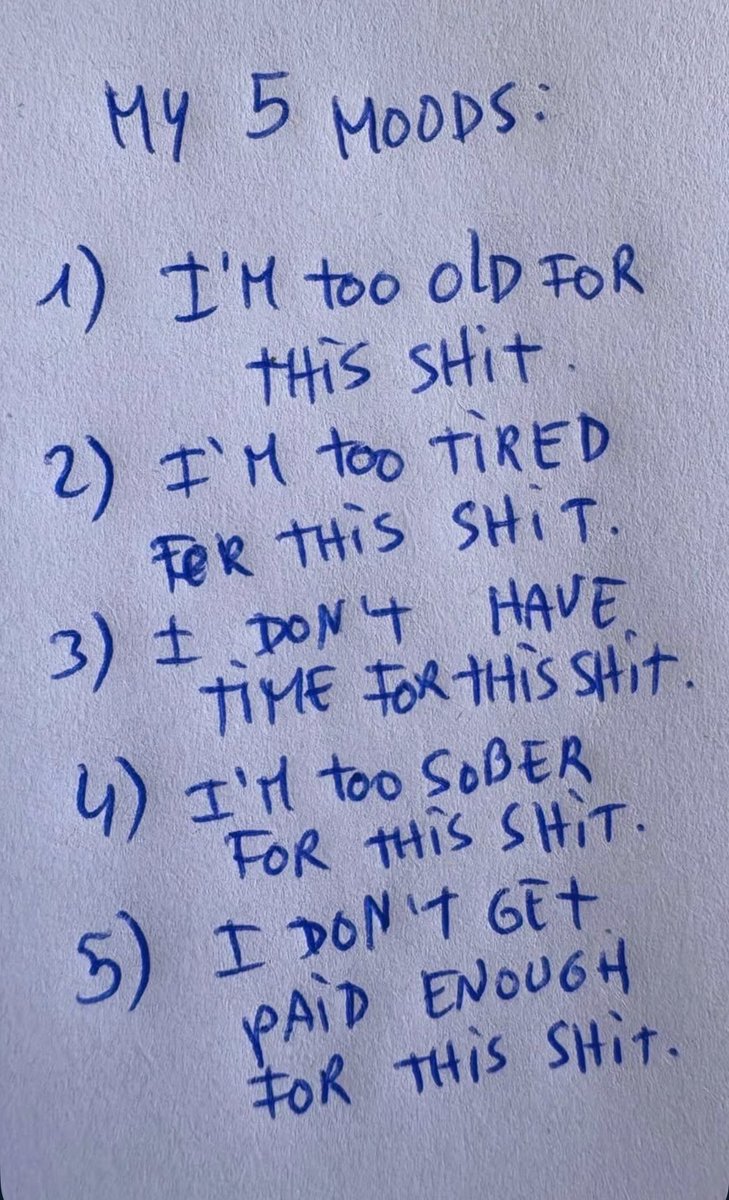 MY 5 MOODS:
1) I'M too OlD FOR
tHiS SHit.
2) I'M too TiRED
FOR tHiS SHiT.
3) I DON't HAVE
TiME FOR tHiS SHit.
4) I'M too SOBER
FOR tHiS SHiT.
5) I DON't GEt
PAiD ENOUGH
FOR tHiS SHit.